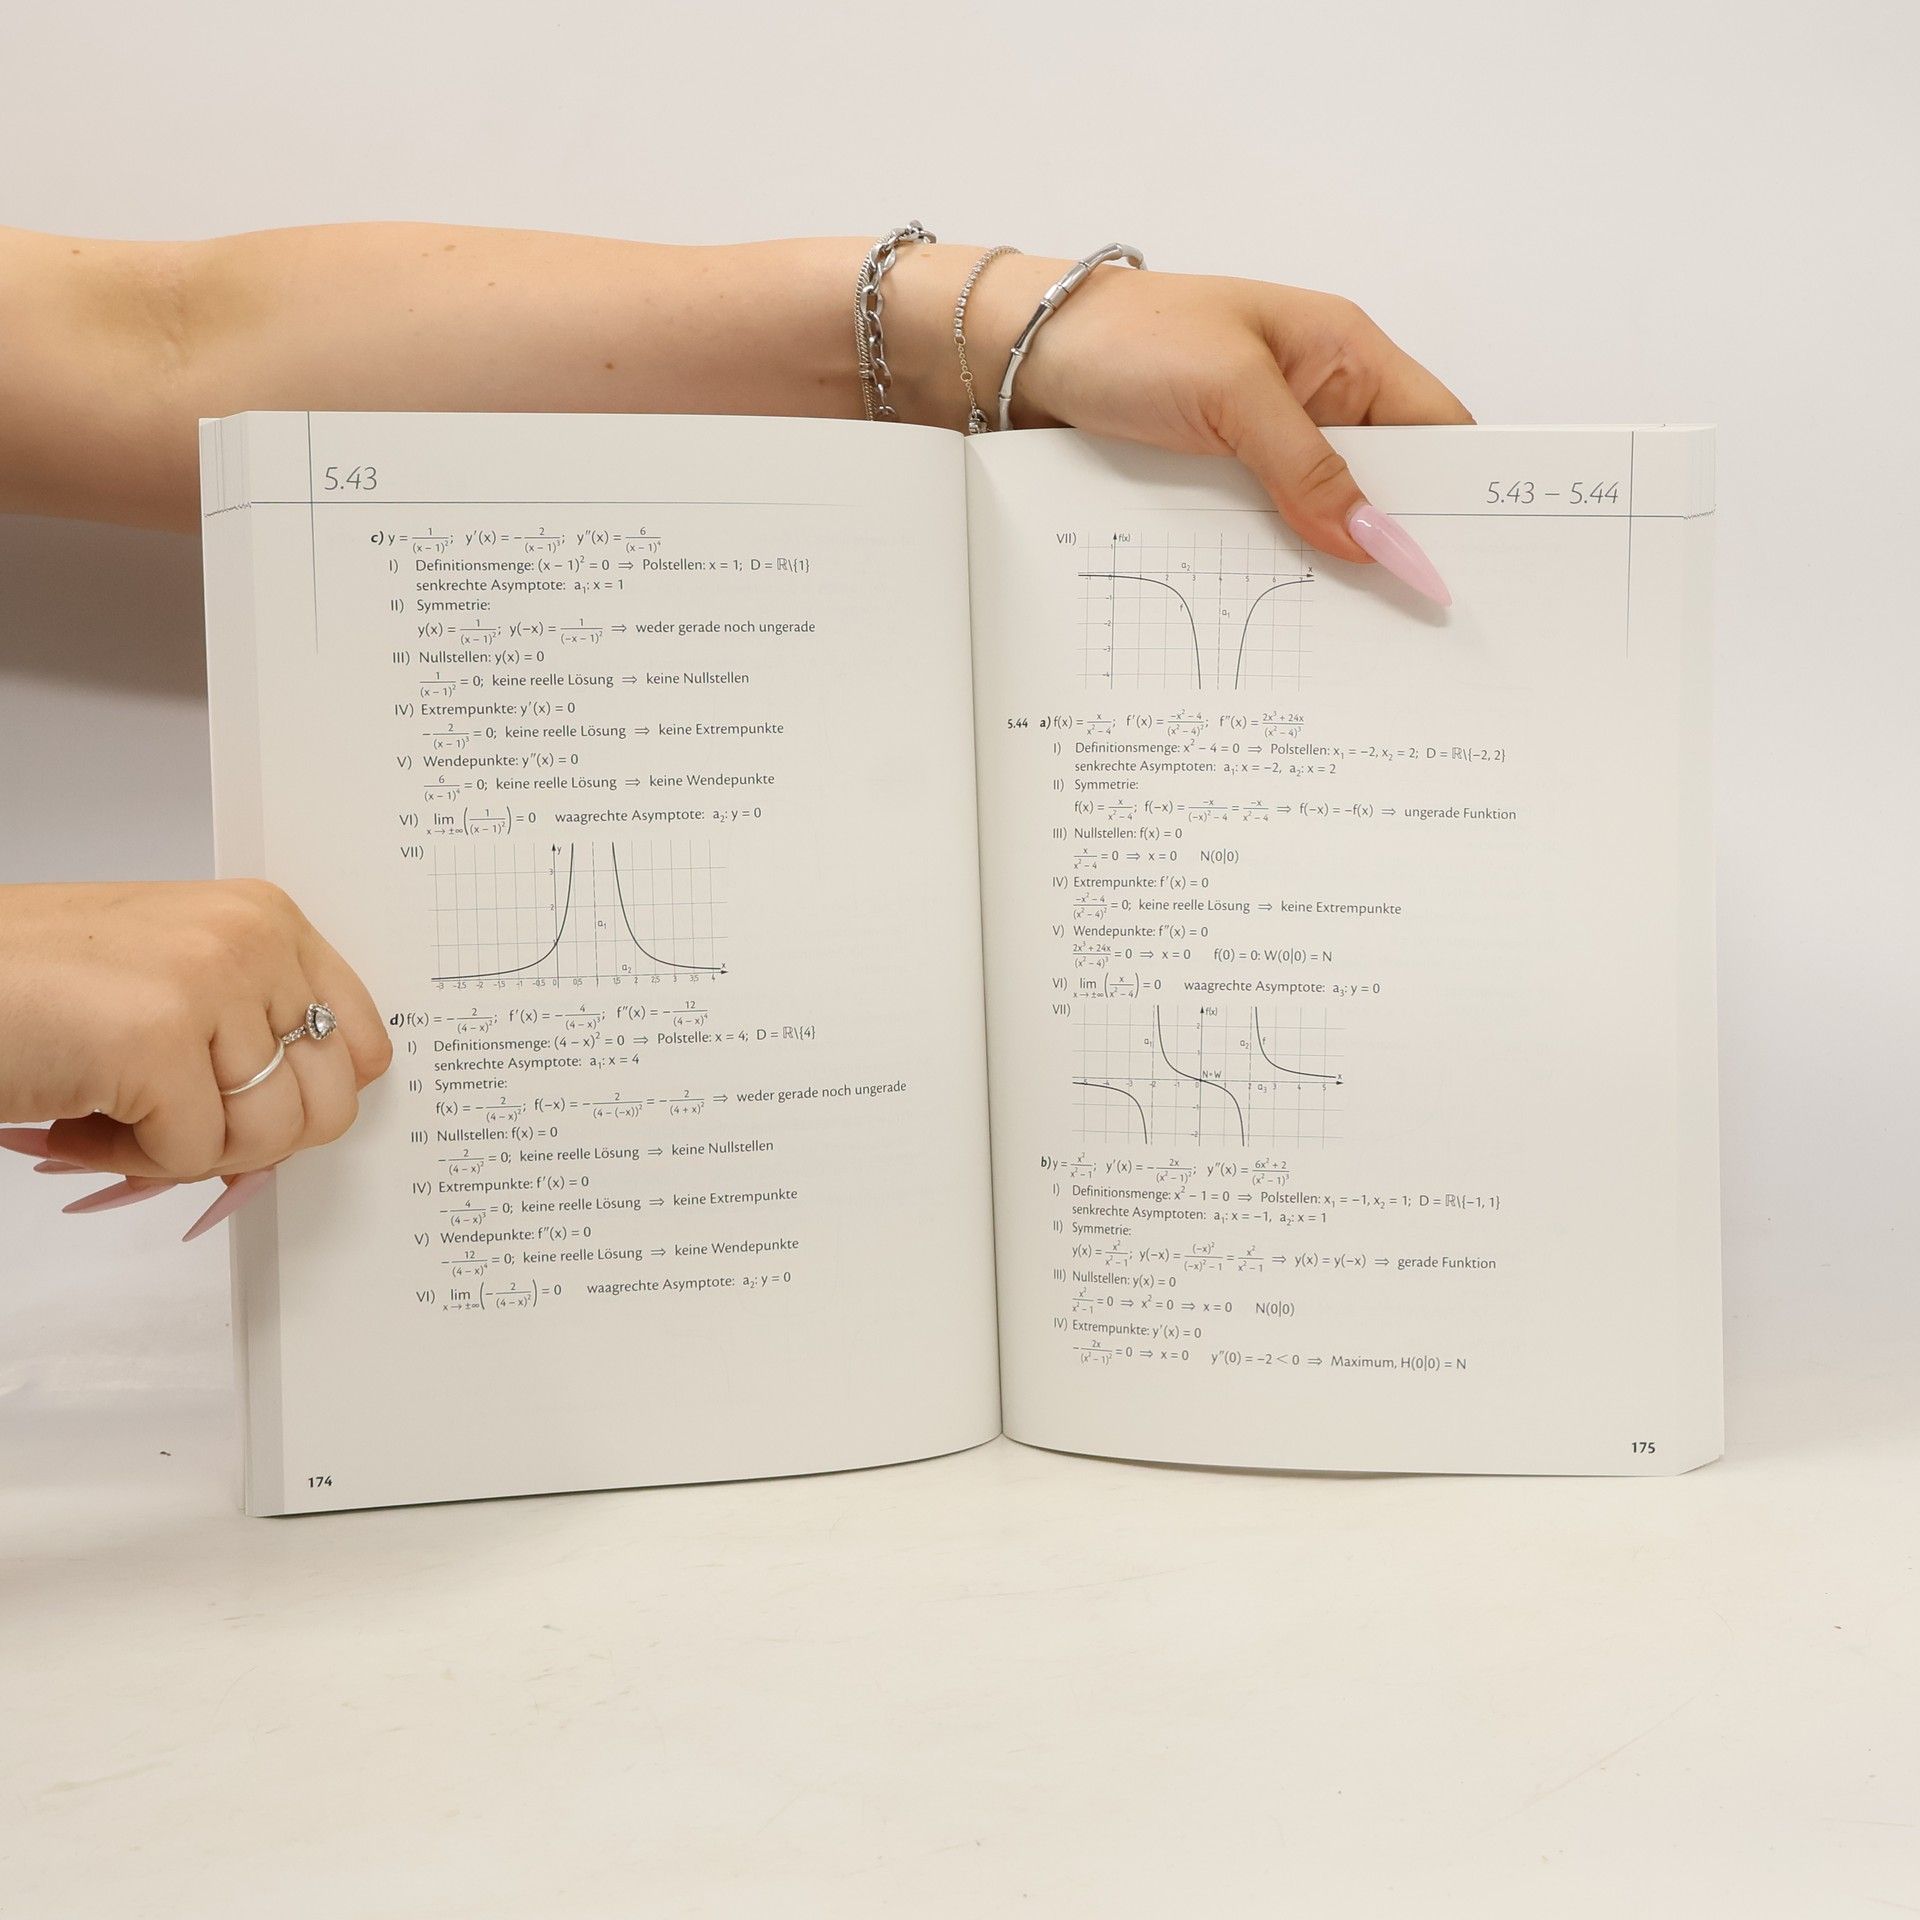 5.43
c) y = 1/(x − 1)²; y′(x) = −2/(x − 1)³; y″(x) = 6/(x − 1)⁴
I) Definitionsmenge: (x − 1)² = 0 ⇒ Polstellen: x = 1; D = ℝ\{1}
senkrechte Asymptote: a₁: x = 1
II) Symmetrie:
y(x) = 1/(x − 1)²; y(−x) = 1/(−x − 1)² ⇒ weder gerade noch ungerade
III) Nullstellen: y(x) = 0
1/(x − 1)² = 0; keine reelle Lösung ⇒ keine Nullstellen
IV) Extrempunkte: y′(x) = 0
−2/(x − 1)³ = 0; keine reelle Lösung ⇒ keine Extrempunkte
V) Wendepunkte: y″(x) = 0
6/(x − 1)⁴ = 0; keine reelle Lösung ⇒ keine Wendepunkte
VI) lim x → ±∞ (1/(x − 1)²) = 0 waagrechte Asymptote: a₂: y = 0
VII)
y
3
2
a₁
a₂
x
−3 −2,5 −2 −1,5 −1 −0,5 0 0,5 1 1,5 2 2,5 3 3,5 4
d) f(x) = −2/(4 − x)²; f′(x) = −4/(4 − x)³; f″(x) = −12/(4 − x)⁴
I) Definitionsmenge: (4 − x)² = 0 ⇒ Polstelle: x = 4; D = ℝ\{4}
senkrechte Asymptote: a₁: x = 4
II) Symmetrie:
f(x) = −2/(4 − x)²; f(−x) = −2/(4 − (−x))² = −2/(4 + x)² ⇒ weder gerade noch ungerade
III) Nullstellen: f(x) = 0
−2/(4 − x)² = 0; keine reelle Lösung ⇒ keine Nullstellen
IV) Extrempunkte: f′(x) = 0
−4/(4 − x)³ = 0; keine reelle Lösung ⇒ keine Extrempunkte
V) Wendepunkte: f″(x) = 0
−12/(4 − x)⁴ = 0; keine reelle Lösung ⇒ keine Wendepunkte
VI) lim x → ±∞ (−2/(4 − x)²) = 0 waagrechte Asymptote: a₂: y = 0
174
5.43 – 5.44
VII)
f(x)
1
a₂
x
−1 0 1 2 3 4 5 6 7
−1
f
a₁
−2
−3
−4
5.44 a) f(x) = x/(x² − 4); f′(x) = (−x² − 4)/(x² − 4)²; f″(x) = (2x³ + 24x)/(x² − 4)³
I) Definitionsmenge: x² − 4 = 0 ⇒ Polstellen: x₁ = −2, x₂ = 2; D = ℝ\{−2, 2}
senkrechte Asymptoten: a₁: x = −2, a₂: x = 2
II) Symmetrie:
f(x) = x/(x² − 4); f(−x) = −x/((−x)² − 4) = −x/(x² − 4) ⇒ f(−x) = −f(x) ⇒ ungerade Funktion
III) Nullstellen: f(x) = 0
x/(x² − 4) = 0 ⇒ x = 0 N(0|0)
IV) Extrempunkte: f′(x) = 0
(−x² − 4)/(x² − 4)² = 0; keine reelle Lösung ⇒ keine Extrempunkte
V) Wendepunkte: f″(x) = 0
(2x³ + 24x)/(x² − 4)³ = 0 ⇒ x = 0 f(0) = 0: W(0|0) = N
VI) lim x → ±∞ (x/(x² − 4)) = 0 waagrechte Asymptote: a₃: y = 0
VII)
f(x)
2
a₁
a₂
f
1
N=W
x
−5 −4 −3 −2 −1 0 1 2 a₃ 3 4 5
−1
−2
b) y = x²/(x² − 1); y′(x) = −2x/(x² − 1)²; y″(x) = (6x² + 2)/(x² − 1)³
I) Definitionsmenge: x² − 1 = 0 ⇒ Polstellen: x₁ = −1, x₂ = 1; D = ℝ\{−1, 1}
senkrechte Asymptoten: a₁: x = −1, a₂: x = 1
II) Symmetrie:
y(x) = x²/(x² − 1); y(−x) = (−x)²/((−x)² − 1) = x²/(x² − 1) ⇒ y(x) = y(−x) ⇒ gerade Funktion
III) Nullstellen: y(x) = 0
x²/(x² − 1) = 0 ⇒ x² = 0 ⇒ x = 0 N(0|0)
IV) Extrempunkte: y′(x) = 0
−2x/(x² − 1)² = 0 ⇒ x = 0 y″(0) = −2 < 0 ⇒ Maximum, H(0|0) = N
175